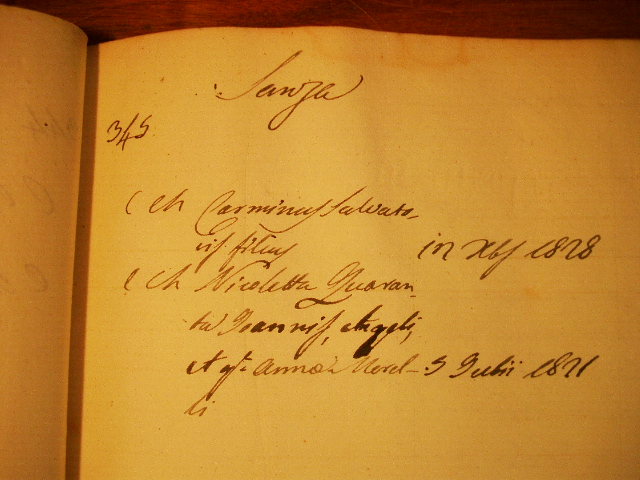 Sanza
345
Carminus Salvato-
ris filius in Xbs 1828
Nicoletta Quaran-
ta Joannis, Angeli,
et qm Anna Morel- 5 Julii 1821
li